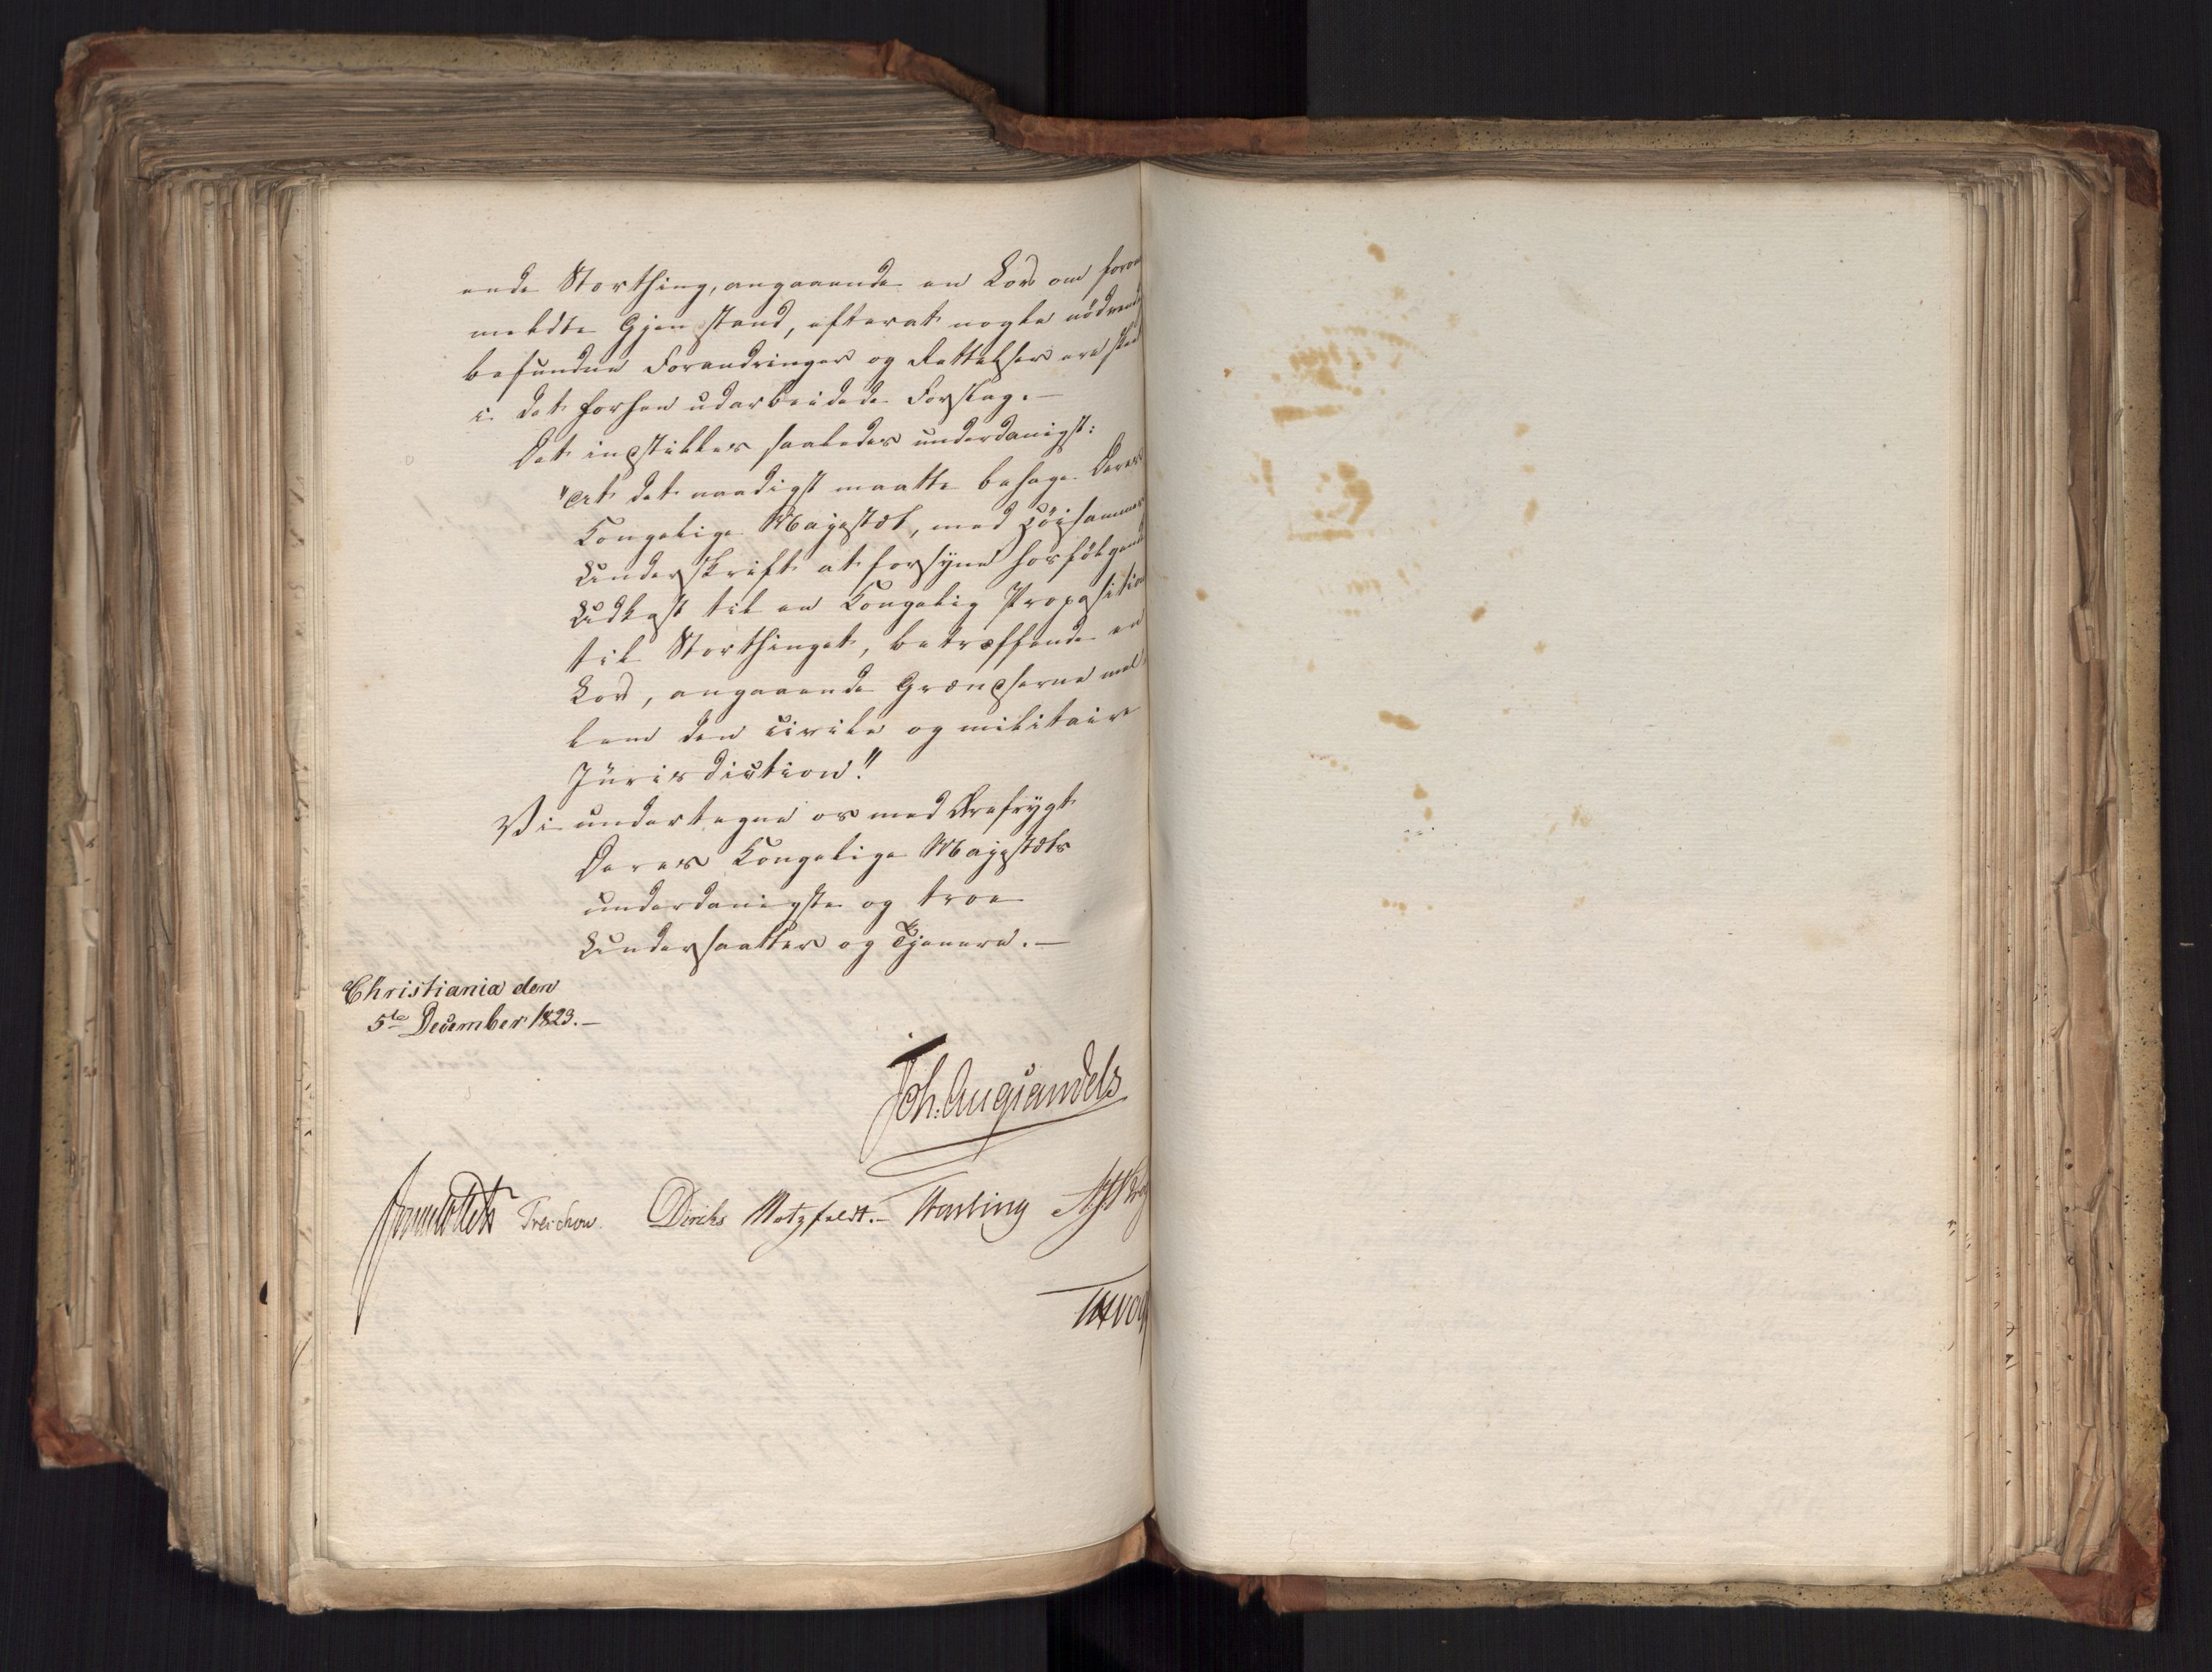 ende Storthing, angaaende en Lov om foran
meldte Gjenstand, efterat nogle nödvend
befundne Forandringer og Rettelser ere skeed
i det forhen udarbeidede Forslag.—
Det indstilles saaledes underdanigst:
"At det naadigst maatte behage Deres
Kongelige Majestæt, med Höjsammes
Underskrift at forsyne hosfölgende
Udkast til en Kongelig Proposition
til Storthinget, betræffende en
Lov, angaaende Grændserne mel
lem den civile og militaire
Jürisdiction."
Vi undertegne os med Ærefrygt
Deres Kongelige Majestæts
underdanigste og troe
Undersaatter og Tjenere.—
Christiania den
5te December 1823.—
Joh: Aug: Sandels
Sommerhielm Treschow. Diriks Motzfeldt.— Fasting